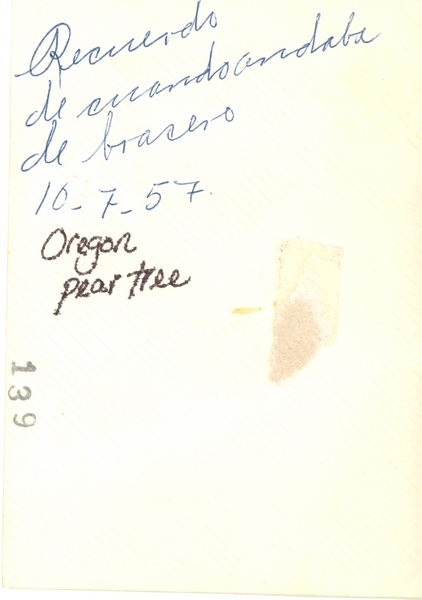 Recuerdo
de cuando andaba
de bracero
10-7-57.
Oregon
pear tree
139